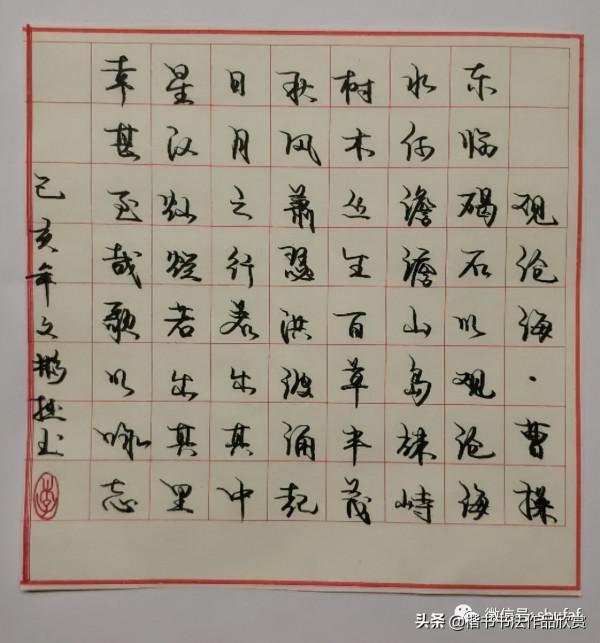 观沧海·曹操
东临碣石以观沧海
水何澹澹山岛竦峙
树木丛生百草丰茂
秋风萧瑟洪波涌起
日月之行若出其中
星汉灿烂若出其里
幸甚至哉歌以咏志
己亥年文拙书
微信号:
头条 @楷书书法作品欣赏